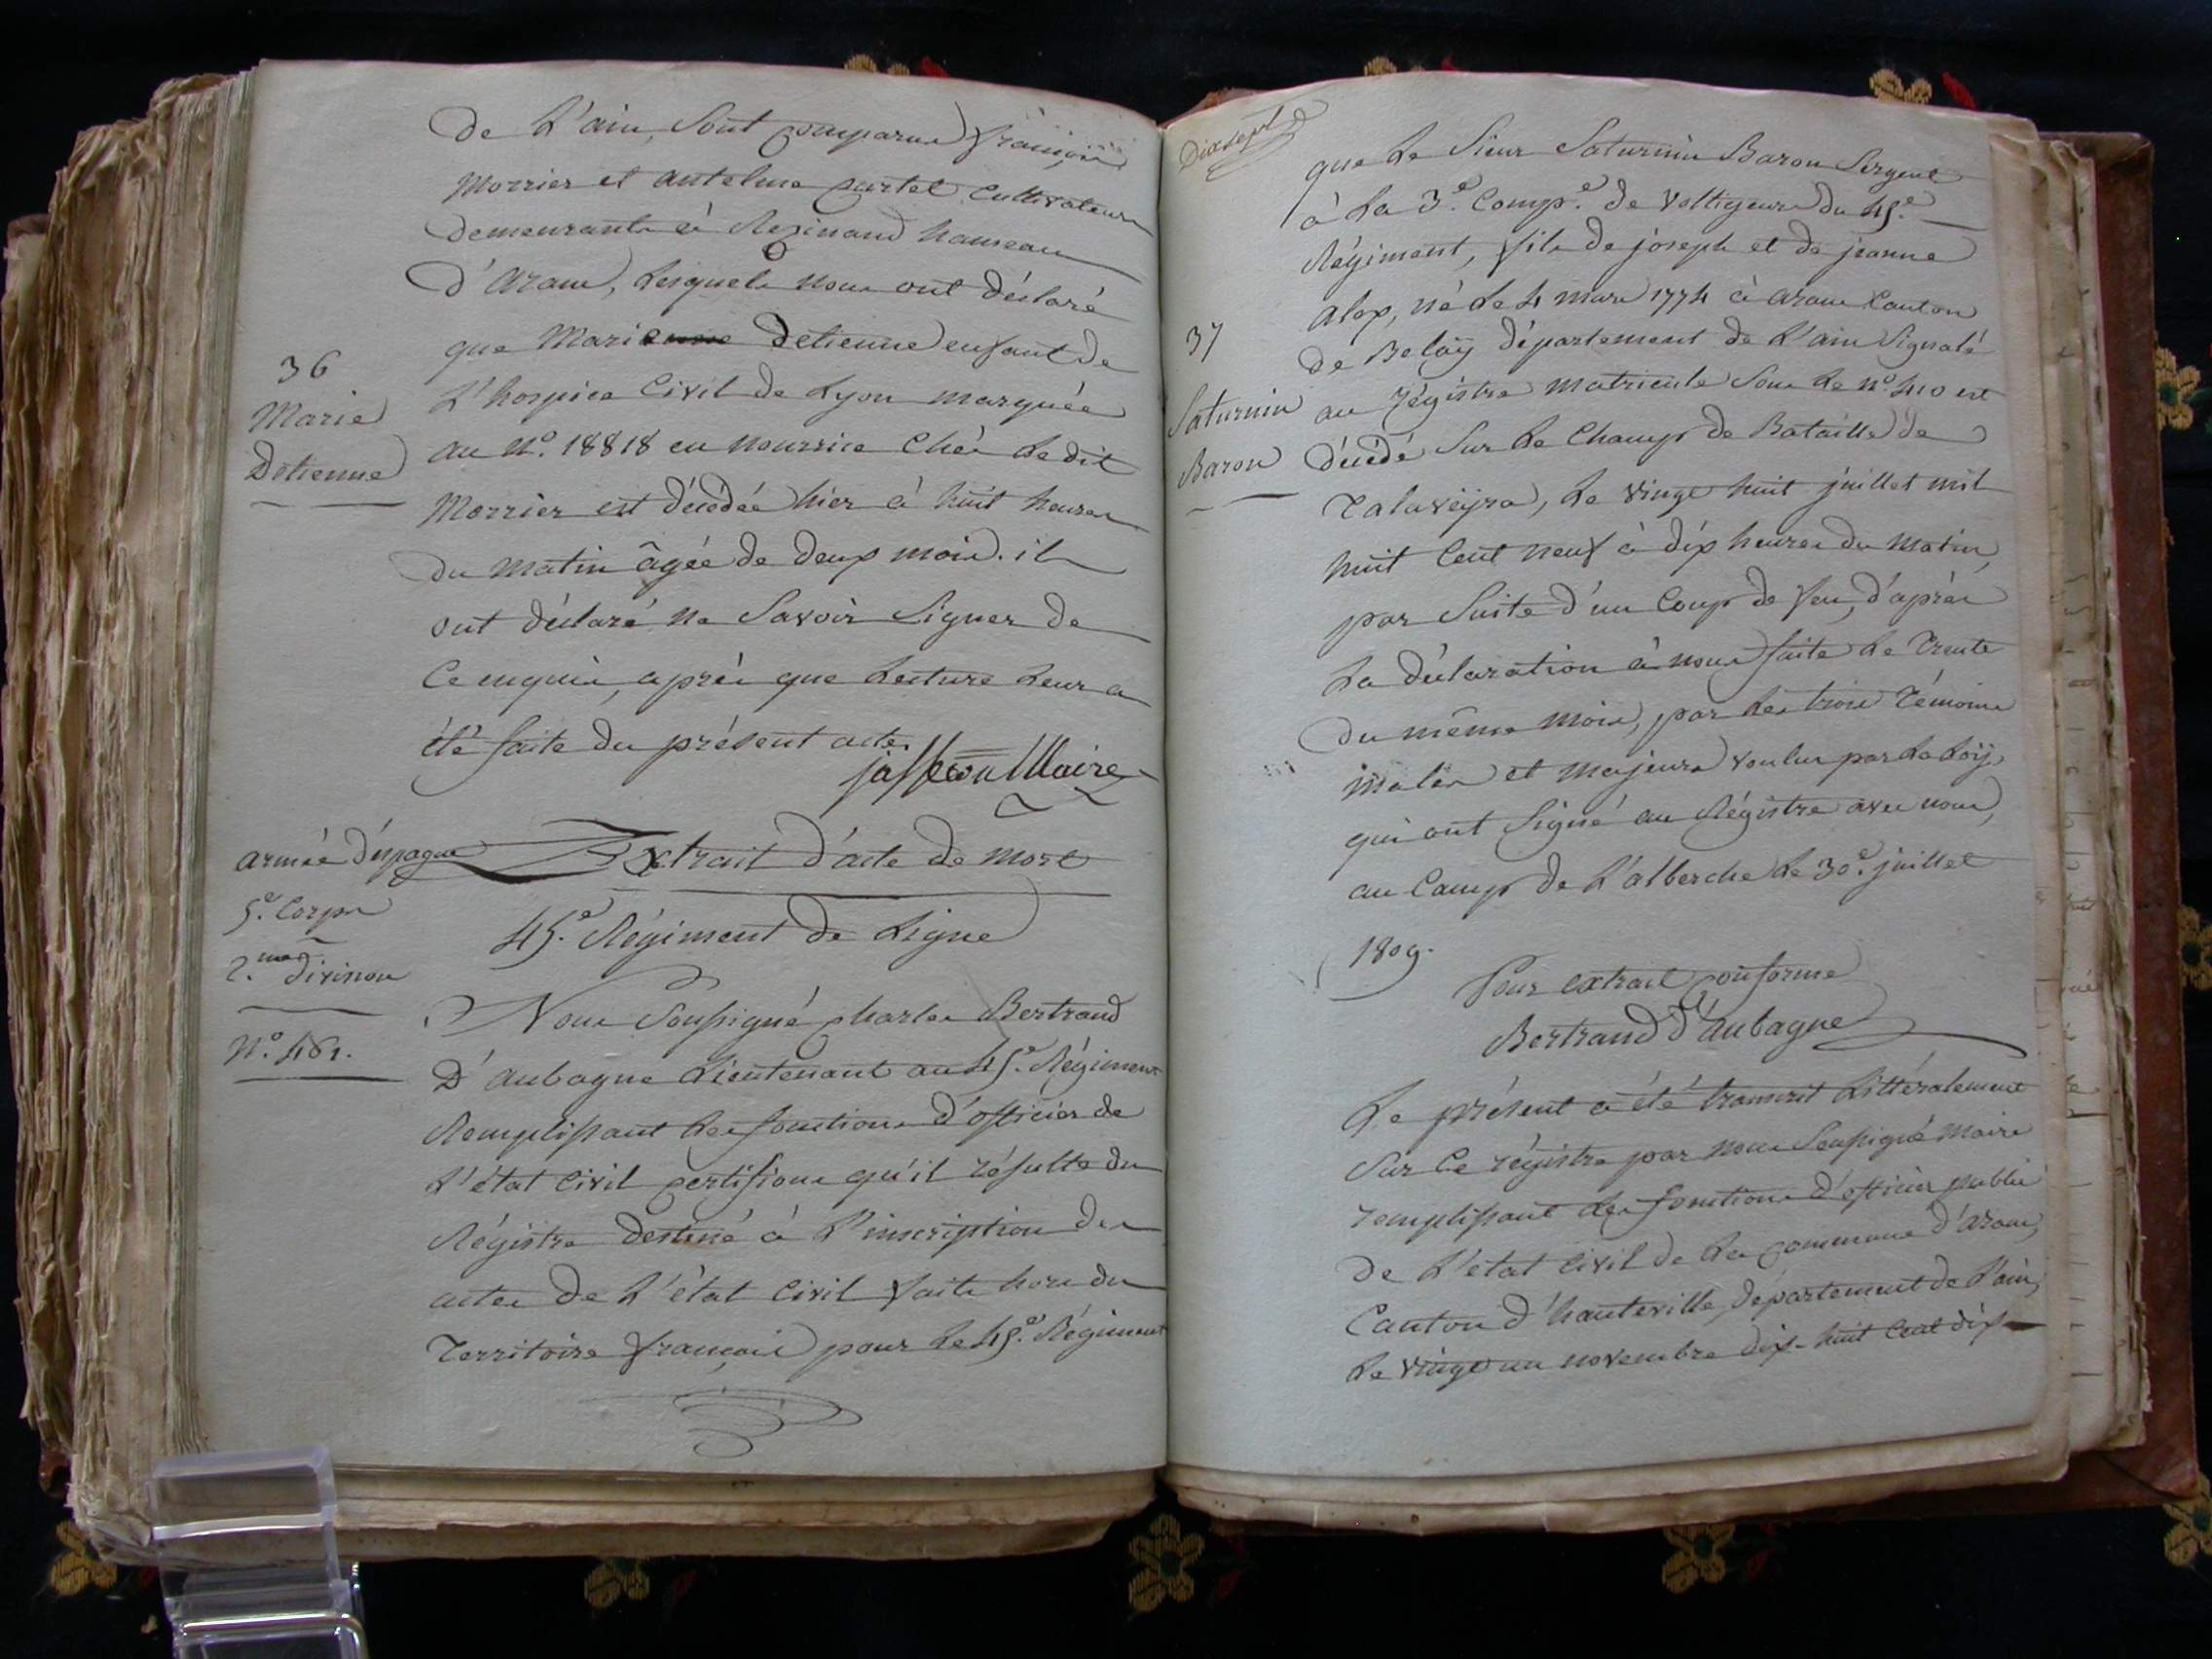 de L'ain, Sont comparus françois
Morrier et antelme curtet Cultivateurs
demeurants à Resinand hameau
d'aranc, Lesquels nous ont déclaré
que Marie detienne enfant de
L'hospice Civil de Lyon marquée
au N°. 18818 en nourrice Chés Le dit
Morrier est décédée hier à huit heures
du matin âgée de deux mois. ils
ont déclaré ne Savoir Signer de
Ce enquis, après que Lecture Leur a
été faite du présent acte.
Maire
36
Marie
Detienne
Extrait d'acte de mort
45.e Régiment de Ligne
armée d'espagne
5.e Corps
2.me division
N°. 461.
Nous Soussigné charles Bertrand
D'aubagne Lieutenant au 45.e Régiment
Remplissant Les fonctions d'officier de
L'état Civil certifions qu'il résulte du
Régistre destiné à L'inscription des
actes de L'état Civil faits hors du
Territoire français pour Le 45.e Régiment
Dix sept
que Le Sieur Saturnin Baron Sergent
à La 3.e Comp.e de Voltigeurs du 45.e
Régiment, fils de joseph et de jeanne
alex, né Le 4 mars 1774 à aranc Canton
de Belaÿ département de L'ain Signalé
au régistre matricule Sous Le n°. 410 est
décédé Sur Le Champ de Bataille de
Talaveÿra, Le vingt huit juillet mil
huit Cent neuf à dix heures du matin,
par Suite d'un Coup de feu, d'après
La déclaration à nous faite Le Trente
du même mois, par Les trois Témoins
males et majeurs voulus par La Loÿ,
qui ont Signé au Régistre avec nous,
au Camp de L'alberche Le 30.e juillet
1809.
37
Saturnin
Baron
Pour extrait conforme
Bertrand d'aubagne
Le présent a été transcrit Littéralement
Sur Ce régistre par nous Soussigné maire
remplissant Les fonctions d'officier public
de L'état Civil de La commune d'aranc,
Canton d'hauteville, département de L'ain,
Le vingt un novembre dix-huit Cent dix